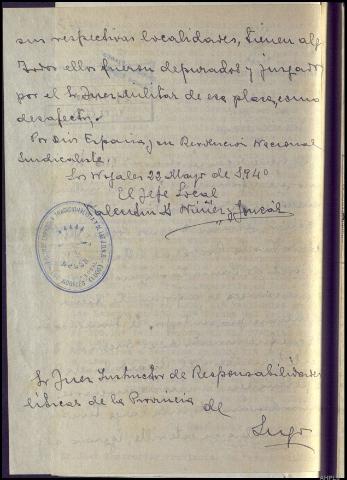 sus respectivas localidades, tienen alg
Todos ellos fueron depurados y juzgados
por el Sr. Juez Militar de esa plaza, como
desafectos.
Por Dios España, y su Revolución Nacional
Sindicalista.
Los Nogales 22 Mayo de 1940
El Jefe Local
Valentín A. Núñez y
Sr Juez Instructor de Responsabilidades
líticas de la Provincia de
Lugo